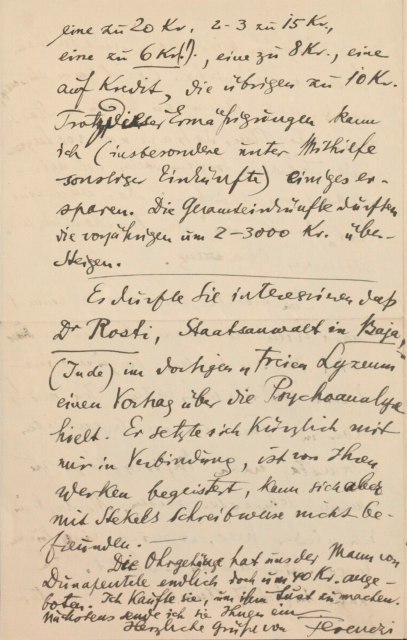 eine zu 20 Kr., 2-3 zu 15 Kr.,
eine zu 6 Kr.(!), eine zu 8 Kr., eine
auf Kredit, die übrigen zu 10 Kr.
Trotz dieser Ermäßigungen kann
ich (insbesondere unter Mithilfe
sonstiger Einkünfte) einiges er-
sparen. Die Gesamteinkünfte dürften
die vorjährigen um 2-3000 Kr. über-
steigen.
Es dürfte Sie interessieren daß
Dr Rosti, Staatsanwalt in Baja,
(Jude) im dortigen Freien Lyzeum
einen Vortrag über die Psychoanalyse
hielt. Er setzte sich kürzlich mit
mir in Verbindung, ist von Ihren
Werken begeistert, kann sich aber
mit Stekels Schreibweise nicht be-
freunden. —
Die Ohrgehänge hat uns der Mann von
Dunapentele endlich doch um 40 Kr. ange-
boten. Ich kaufte sie, um Ihnen Lust zu machen.
Nächstens sende ich sie Ihnen ein.
Herzliche Grüße von Ferenczi